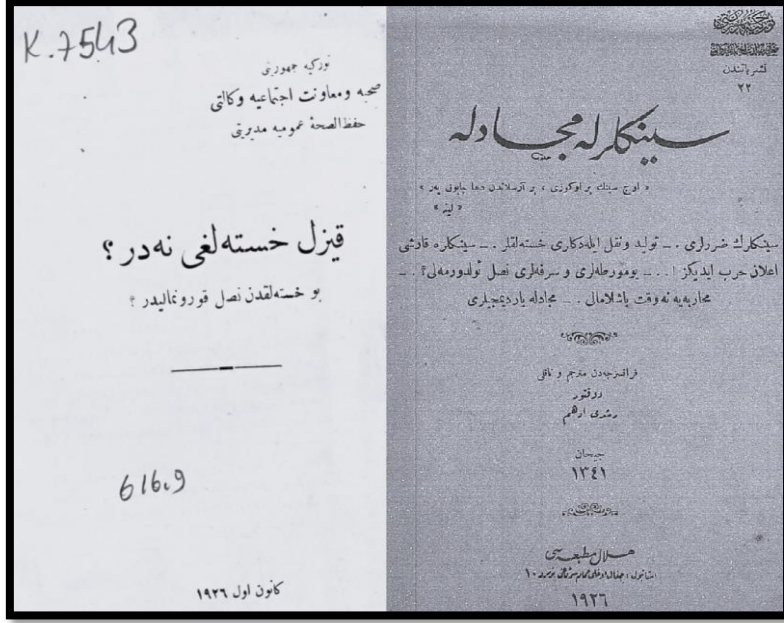 K.7543
تورکیه جمهوریتی
صحیه و معاونت اجتماعیه وکالتی
حفظ الصحهٔ عمومیه مدیریتی
قیزل خسته‌لغی نه‌در ؟
بو خسته‌لقدن نصل قورونمالیدر ؟
616.9
کانون اول ١٩٢٦
نشریاتندن
٢٢
سینکلرله مجادله
« اوچ سینك بر اوکوزی ، بر آرسلاندن دها چابوق یه‌ر »
« لینه »
سینکلرك ضررلری . ـ تولید و نقل ایله‌دکلری خسته‌لقلر . ـ سینکلره قارشی
اعلان حرب ایدیکز ! . ـ یومورطه‌لری و سرفه‌لری نصل ئولدورمه‌لی؟ . ـ
محاربه‌یه نه وقت باشلامالی . ـ مجادله یاردیمجیلری
فرانسزجه‌دن مترجم و ناقلی
دوقتور
رشدی ادهم
جیحان
١٣٤١
هلال مطبعه‌سی
استانبول ، جغال اوغلی
نومرو ١٠
١٩٢٦